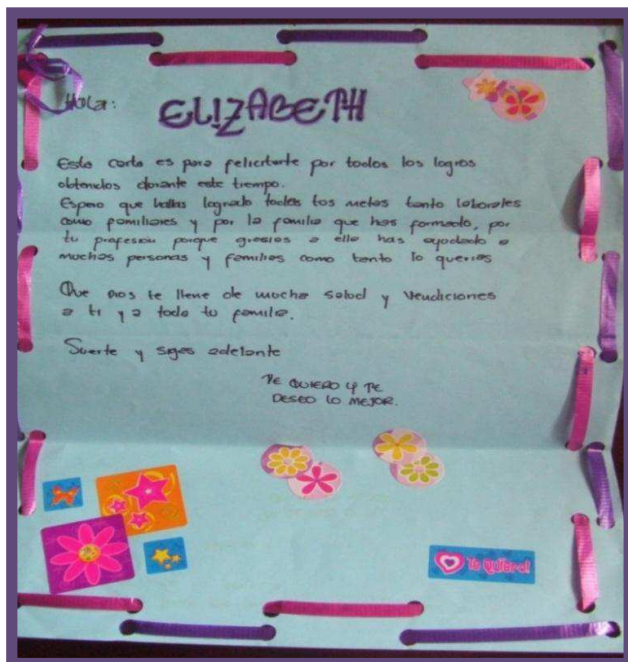 Hola:
ELIZABETH
Esta carta es para felicitarte por todos los logros
obtenidos durante este tiempo.
Espero que hallas logrado todas tus metas tanto laborales
como familiares y por la familia que has formado, por
tu profesion porque gracias a ella has ayudado a
muchas personas y familias como tanto lo querias
Que Dios te llene de mucha salud y Vendiciones
a ti y a toda tu familia.
Suerte y sigas adelante
TE QUIERO Y TE
DESEO LO MEJOR.
Te Quiero!